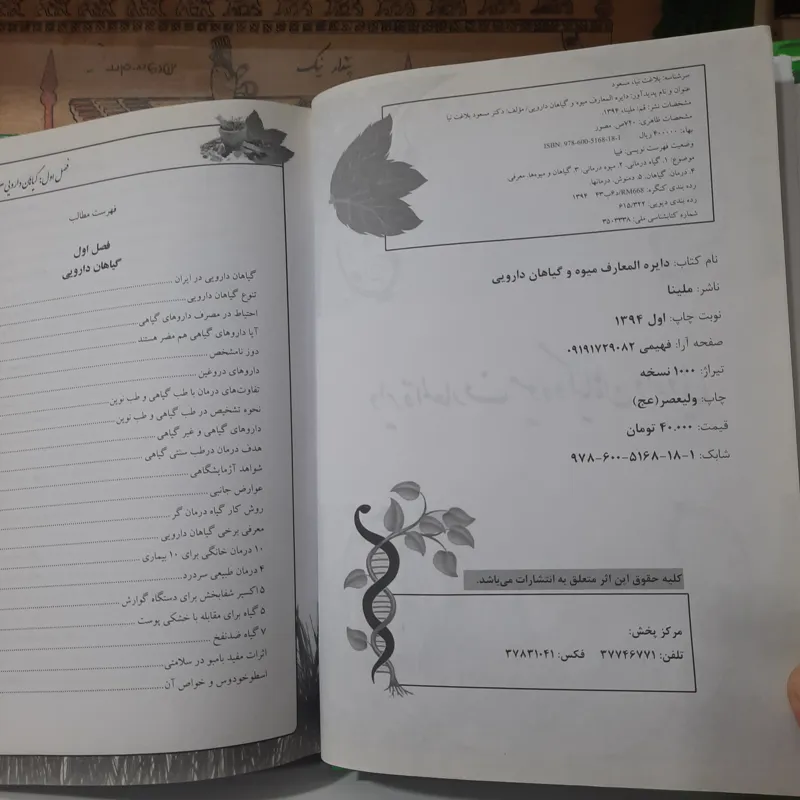 پندار نیک
سرشناسه: بلاغت نیا، مسعود
عنوان و نام پدیدآور: دایره المعارف میوه و گیاهان دارویی/ مؤلف: دکتر مسعود بلاغت نیا
مشخصات نشر: قم، ملینا، ۱۳۹۴.
مشخصات ظاهری: ۷۲۰ص. مصور
بهاء: ۴۰۰۰۰۰ ریال ISBN: 978-600-5168-18-1
وضعیت فهرست نویسی: فیپا
موضوع: ۱. گیاه درمانی. ۲. میوه درمانی. ۳. گیاهان و میوه‌ها، معرفی.
۴. درمان گیاهان. ۵. دمنوش، درمانها.
رده بندی کنگره: RM668/ ۱۳۹۴
رده بندی دیویی: ۶۱۵/۳۲۲
شماره کتابشناسی ملی: ۳۵۰۳۳۳۸
نام کتاب: دایره المعارف میوه و گیاهان دارویی
ناشر: ملینا
نوبت چاپ: اول ۱۳۹۴
صفحه آرا: فهیمی ۰۹۱۹۱۷۲۹۰۸۲
تیراژ: ۱۰۰۰ نسخه
چاپ: ولیعصر(عج)
قیمت: ۴۰.۰۰۰ تومان
شابک: ۱-۱۸-۵۱۶۸-۶۰۰-۹۷۸
کلیه حقوق این اثر متعلق به انتشارات می‌باشد.
مرکز پخش:
تلفن: ۳۷۷۴۶۷۷۱ فکس: ۳۷۸۳۱۰۴۱
فصل اول: گیاهان دارویی
فهرست مطالب
فصل اول
گیاهان دارویی
گیاهان دارویی در ایران
تنوع گیاهان دارویی
احتیاط در مصرف داروهای گیاهی
آیا داروهای گیاهی هم مضر هستند
دوز نامشخص
داروهای دروغین
تفاوت‌های درمان با طب گیاهی و طب نوین
نحوه تشخیص در طب گیاهی و طب نوین
داروهای گیاهی و غیر گیاهی
هدف درمان درطب سنتی گیاهی
شواهد آزمایشگاهی
عوارض جانبی
روش کار گیاه درمان گر
معرفی برخی گیاهان دارویی
۱۰ درمان خانگی برای ۱۰ بیماری
۴ درمان طبیعی سردرد
۵ اکسیر شفابخش برای دستگاه گوارش
۵ گیاه برای مقابله با خشکی پوست
۷ گیاه ضدنفخ
اثرات مفید بامبو در سلامتی
اسطوخودوس و خواص آن